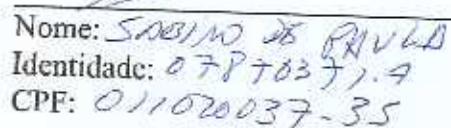 Nome: SABINO DE PAULA
Identidade: 07870371.9
CPF: 011020037-35